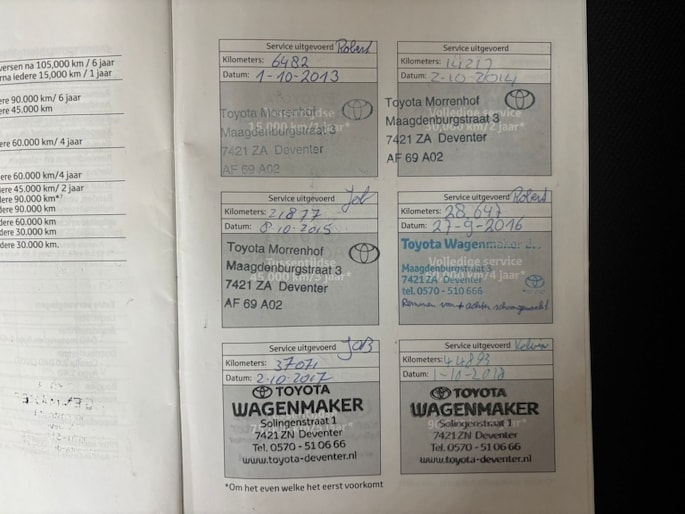 versen na 105,000 km / 6 jaar
rna iedere 15,000 km / 1 jaar
ere 90.000 km/ 6 jaar
ere 45.000 km
ere 60.000 km/ 4 jaar
ere 60.000 km/4 jaar
ere 45.000 km/ 2 jaar
dere 90.000 km*
dere 90.000 km
dere 60.000 km
dere 30.000 km
dere 30.000 km.
Service uitgevoerd Robert
Kilometers: 6482
Datum: 1-10-2013
Toyota Morrenhof
Maagdenburgstraat 3
7421 ZA Deventer
AF 69 A02
Service uitgevoerd
Kilometers: 14217
Datum: 2-10-2014
Toyota Morrenhof
Maagdenburgstraat 3
7421 ZA Deventer
AF 69 A02
Service uitgevoerd Job
Kilometers: 21877
Datum: 8-10-2015
Toyota Morrenhof
Maagdenburgstraat 3
7421 ZA Deventer
AF 69 A02
Service uitgevoerd Robert
Kilometers: 28.647
Datum: 27-9-2016
Toyota Wagenmaker
Volledige service
Maagdenburgstraat 3
7421 ZA Deventer
tel. 0570 - 510 666
Remmen voor + achter schoongemaakt
Service uitgevoerd Job
Kilometers: 37071
Datum: 2-10-2017
TOYOTA
WAGENMAKER
Solingenstraat 1
7421 ZN Deventer
Tel. 0570 - 51 06 66
www.toyota-deventer.nl
Service uitgevoerd
Kilometers: 44893
Datum: 1-10-2018
TOYOTA
WAGENMAKER
Solingenstraat 1
7421 ZN Deventer
Tel. 0570 - 51 06 66
www.toyota-deventer.nl
*Om het even welke het eerst voorkomt